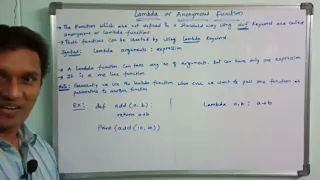 Lambda or Anonymous Function
→ The function which are not defined in a standard way using def keyword are called
anonymous or lambda function.
→ These functions can be created by using Lambda keyword
Syntax: Lambda arguments : expression
→ A lambda function can have any no of arguments, but can have only one expression
→ It is a one line function.
Note: Generally we use the lambda function when ever we want to pass one function as
parameters to another function
Ex: def add (a, b):
return a+b
Print (add (10, 20))
Lambda a, b : a+b